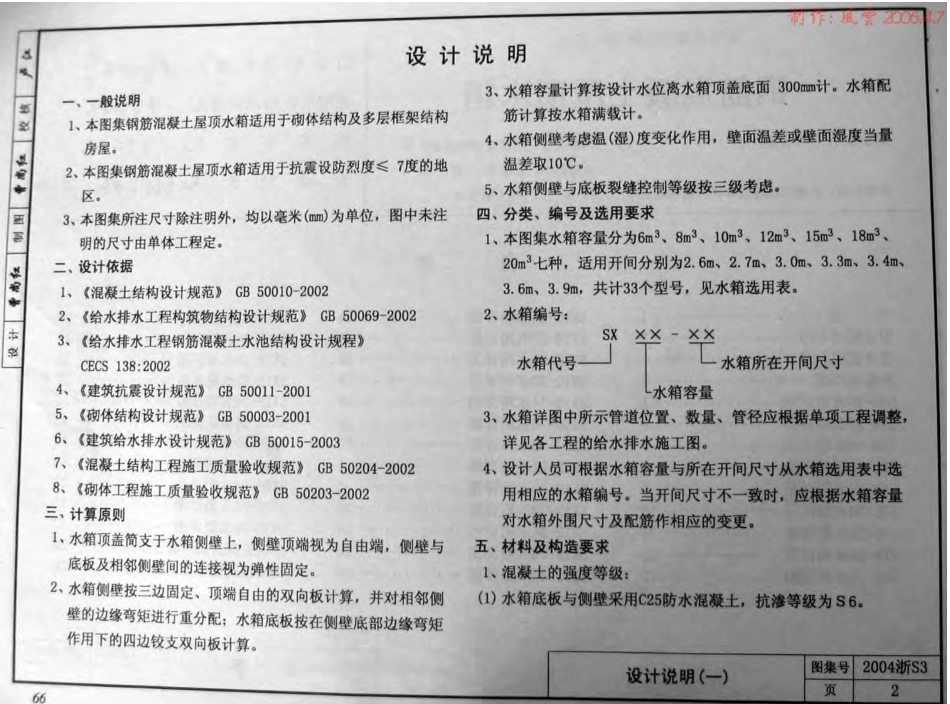 制作:風雲 2006.4.7
设计说明
一、一般说明
1、本图集钢筋混凝土屋顶水箱适用于砌体结构及多层框架结构
房屋。
2、本图集钢筋混凝土屋顶水箱适用于抗震设防烈度≤ 7度的地
区。
3、本图集所注尺寸除注明外，均以毫米(mm)为单位，图中未注
明的尺寸由单体工程定。
二、设计依据
1、《混凝土结构设计规范》 GB 50010-2002
2、《给水排水工程构筑物结构设计规范》 GB 50069-2002
3、《给水排水工程钢筋混凝土水池结构设计规程》
CECS 138:2002
4、《建筑抗震设计规范》 GB 50011-2001
5、《砌体结构设计规范》 GB 50003-2001
6、《建筑给水排水设计规范》 GB 50015-2003
7、《混凝土结构工程施工质量验收规范》 GB 50204-2002
8、《砌体工程施工质量验收规范》 GB 50203-2002
三、计算原则
1、水箱顶盖简支于水箱侧壁上，侧壁顶端视为自由端，侧壁与
底板及相邻侧壁间的连接视为弹性固定。
2、水箱侧壁按三边固定、顶端自由的双向板计算，并对相邻侧
壁的边缘弯矩进行重分配；水箱底板按在侧壁底部边缘弯矩
作用下的四边铰支双向板计算。
3、水箱容量计算按设计水位离水箱顶盖底面 300mm计。水箱配
筋计算按水箱满载计。
4、水箱侧壁考虑温(湿)度变化作用，壁面温差或壁面湿度当量
温差取10℃。
5、水箱侧壁与底板裂缝控制等级按三级考虑。
四、分类、编号及选用要求
1、本图集水箱容量分为6m³、8m³、10m³、12m³、15m³、18m³、
20m³七种，适用开间分别为2.6m、2.7m、3.0m、3.3m、3.4m、
3.6m、3.9m，共计33个型号，见水箱选用表。
2、水箱编号：
SX ×× - ××
水箱代号
水箱所在开间尺寸
水箱容量
3、水箱详图中所示管道位置、数量、管径应根据单项工程调整，
详见各工程的给水排水施工图。
4、设计人员可根据水箱容量与所在开间尺寸从水箱选用表中选
用相应的水箱编号。当开间尺寸不一致时，应根据水箱容量
对水箱外围尺寸及配筋作相应的变更。
五、材料及构造要求
1、混凝土的强度等级：
(1) 水箱底板与侧壁采用C25防水混凝土，抗渗等级为S6。
校核
制图
设计
设计说明(一)
图集号 2004浙S3
页 2
66